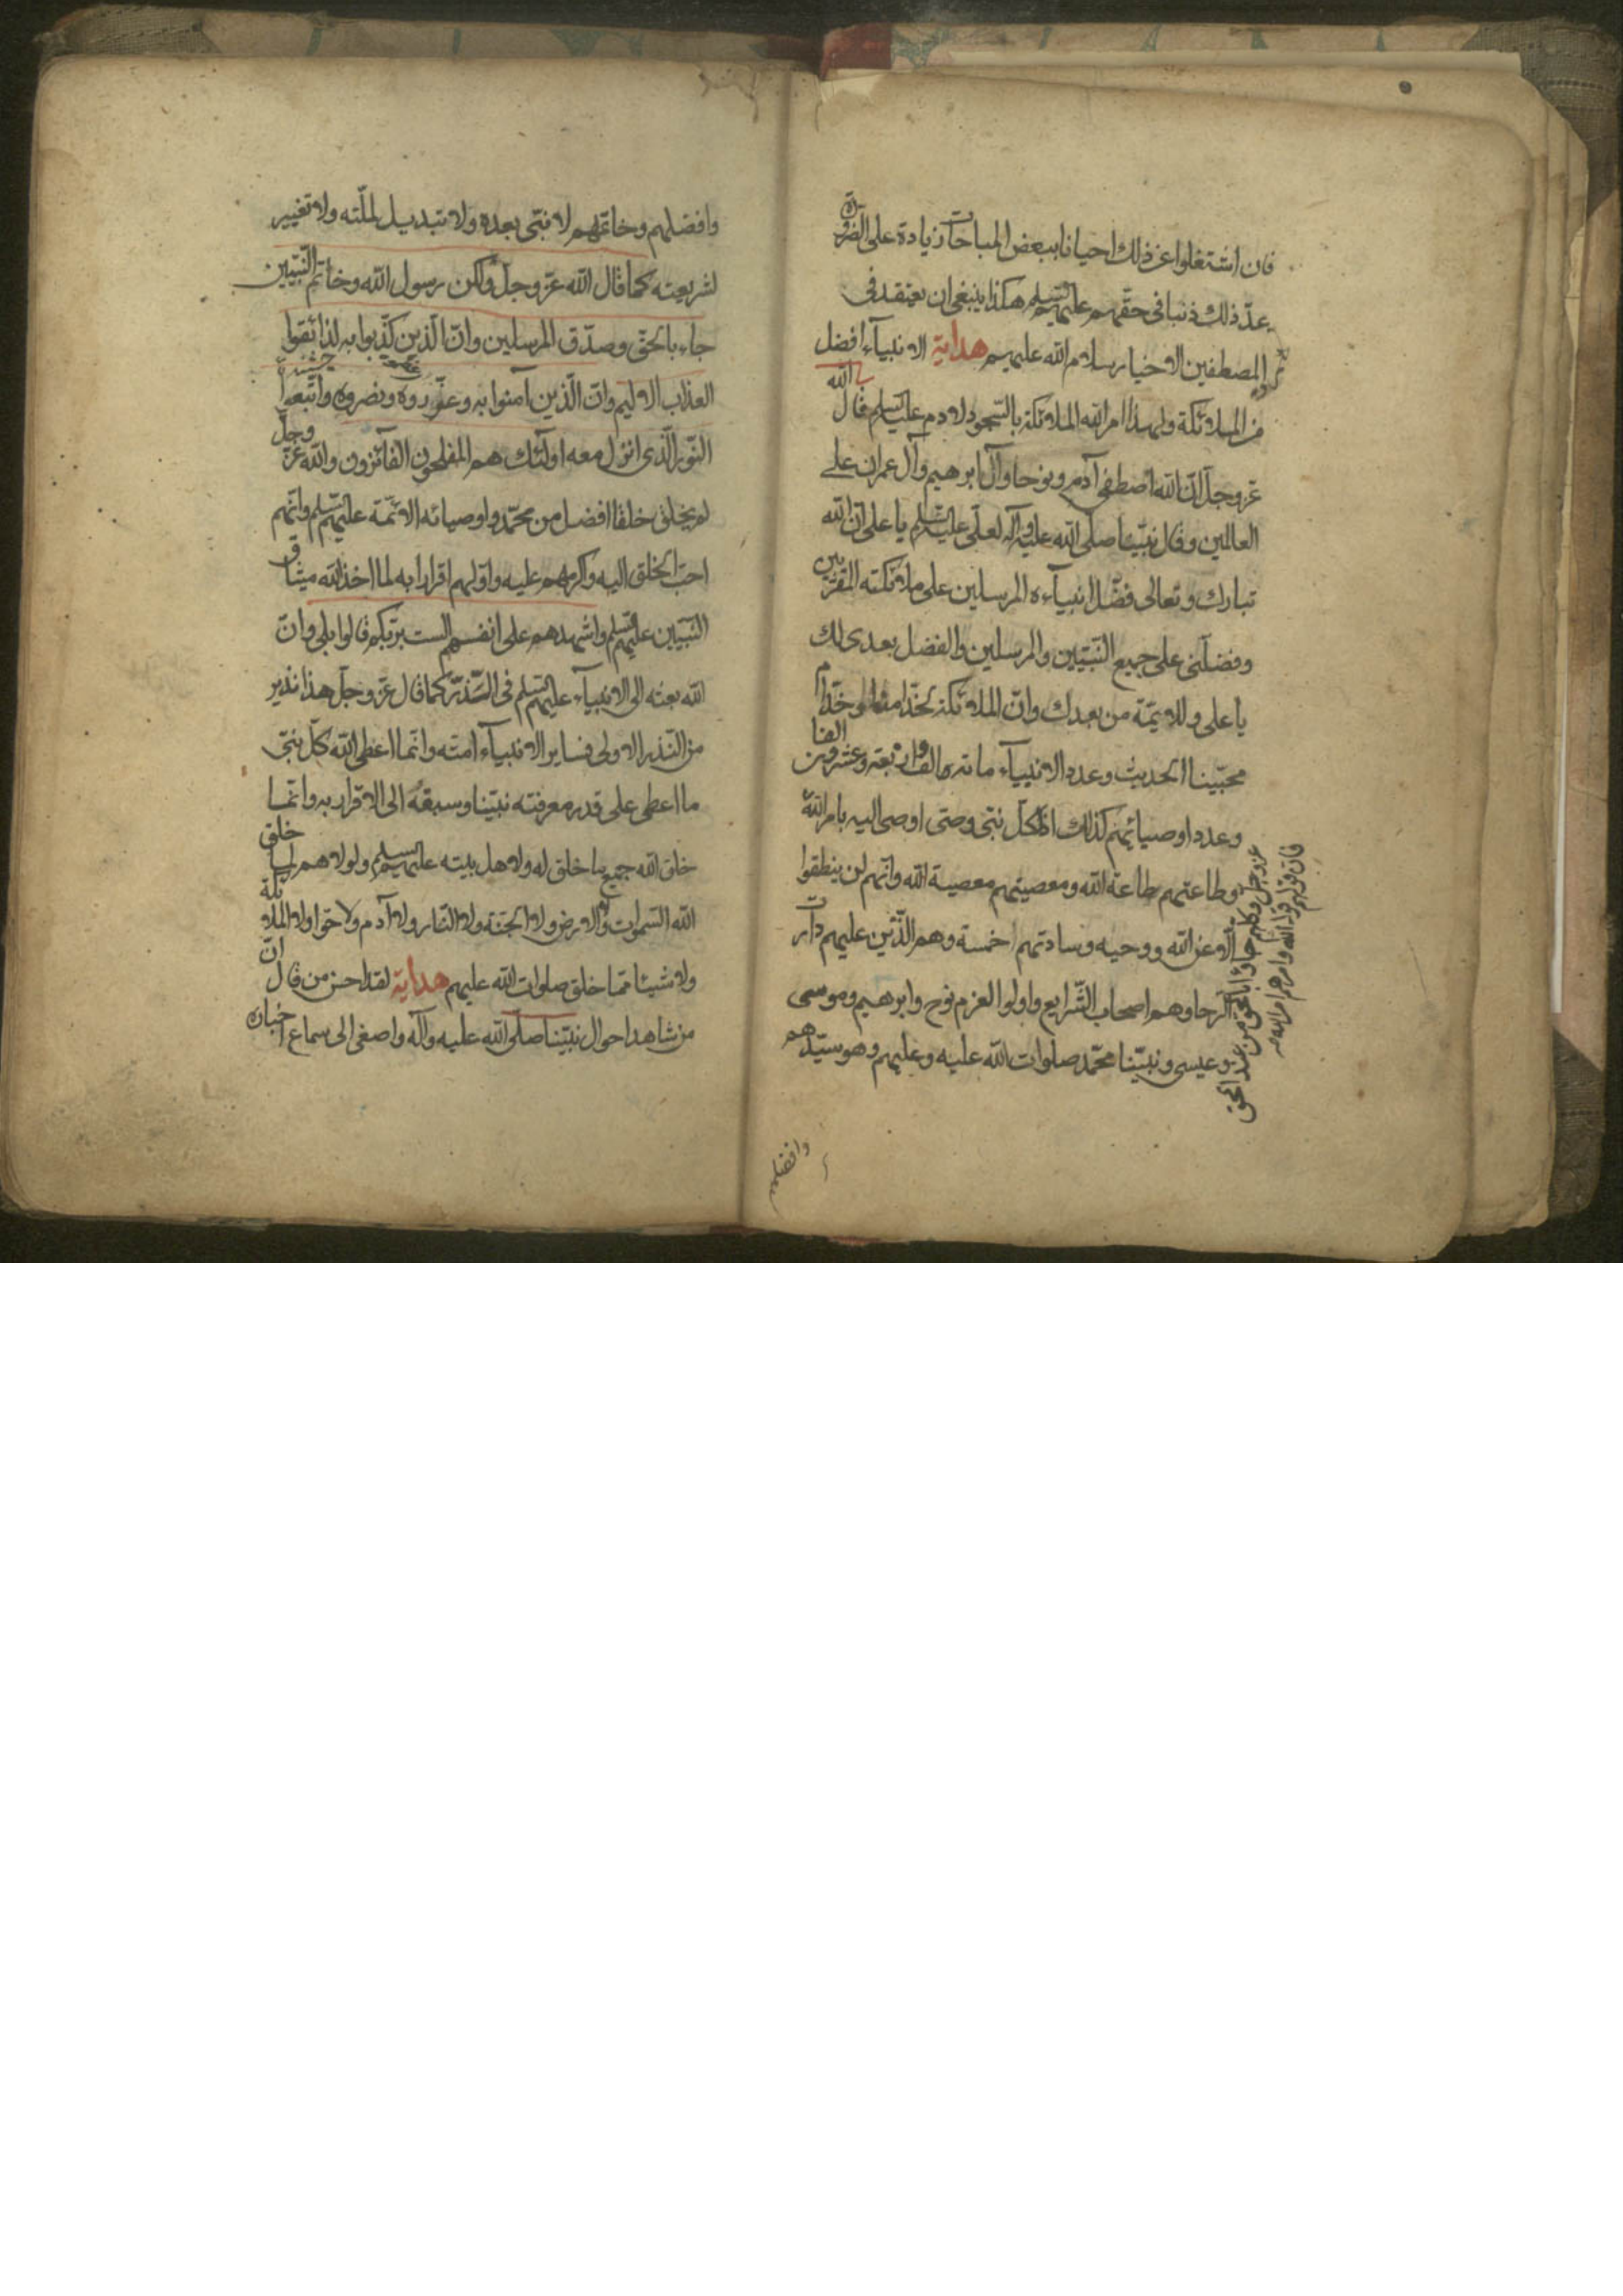 فان اشتغلوا عن ذلك احيانا ببعض المباحات زيادة على الضرورة
يعدّ ذلك ذنبا فى حقّهم عليهم السلم هكذا ينبغى ان يعتقد فى
المصطفين الاخيار سلام الله عليهم هداية الانبيآء افضل
من الملائكة ولهذا امر الله الملائكة بالسّجود لادم عليه السلم قال الله
عزوجل انّ الله اصطفى آدم ونوحا وآل ابرهيم وآل عمران على
العالمين وقال نبيّنا صلّى الله عليه وآله لعلّى عليه السلم يا على انّ الله
تبارك وتعالى فضّل انبيآءه المرسلين على ملائكته المقرّبين
وفضلّنى على جميع النّبيّين والمرسلين والفضل بعدى لك
يا على وللايمّة من بعدك وانّ الملائكة لخدّامنا وخدّام
محبّينا الحديث وعدد الانبيآء مائه الف واربعة وعشرون الفا
وعدد اوصيائهم كذلك اذ لكلّ نبّى وصّى اوصى اليه بامر الله
عزوجل وكلهم جاؤا بالحق من عند الحق
فان قولهم قول الله وامرهم امر الله
وطاعتهم طاعة الله ومعصيتهم معصية الله وانّهم لن ينطقوا
الّا عن الله ووحيه وسادتهم خمسة وهم الّذين عليهم دارت
الرحا وهم اصحاب الشّرايع واولوا العزم نوح وابرهيم وموسى
وعيسى ونبيّنا محمّد صلوات الله عليه وعليهم وهو سيّدهم
وافضلهم
وافضلهم وخاتمهم لا نبّى بعده ولا تبديل لملّته ولا تغيير
لشريعته كما قال الله عزّوجلّ ولكن رسول الله وخاتم النّبيّين
جاء بالحقّ وصدّق المرسلين وانّ الّذين كذّبوا به لذائقوا
العذاب الاليم وانّ الّذين آمنوا به وعزّروه ونصروه واتّبعوا
النّور الّذى انزل معه اولئك هم المفلحون الفآئزون والله عزّ وجلّ
لم يخلق خلقا افضل من محمّد واوصيائه الائمّة عليهم السّلم وانّهم
احبّ الخلق اليه واكرمهم عليه واوّلهم اقرارا به لما اخذ الله ميثاق
النّبيّين عليهم السّلم واشهدهم على انفسهم الست بربّكم قالوا بلى وانّ
الله بعثه الى الانبيآء عليهم السّلم فى الذّر كما قال عزّوجلّ هذا نذير
من النّذر الاولى فساير الانبيآء امّته وانّما اعطى الله كلّ نبّى
ما اعطى على قدر معرفته نبيّنا وسبقه الى الاقرار به وانّما
خلق الله جميع ما خلق له ولاهل بيته عليهم السلم ولولاهم لما خلق
الله السّموات والارض ولا الجنّة ولا النّار ولا آدم ولا حوّا ولا الملائكة
ولا شيئا ممّا خلق صلوات الله عليهم هداية لقد احسن من قال انّ
من شاهد احوال نبيّنا صلّى الله عليه وآله واصغى الى سماع اخباره